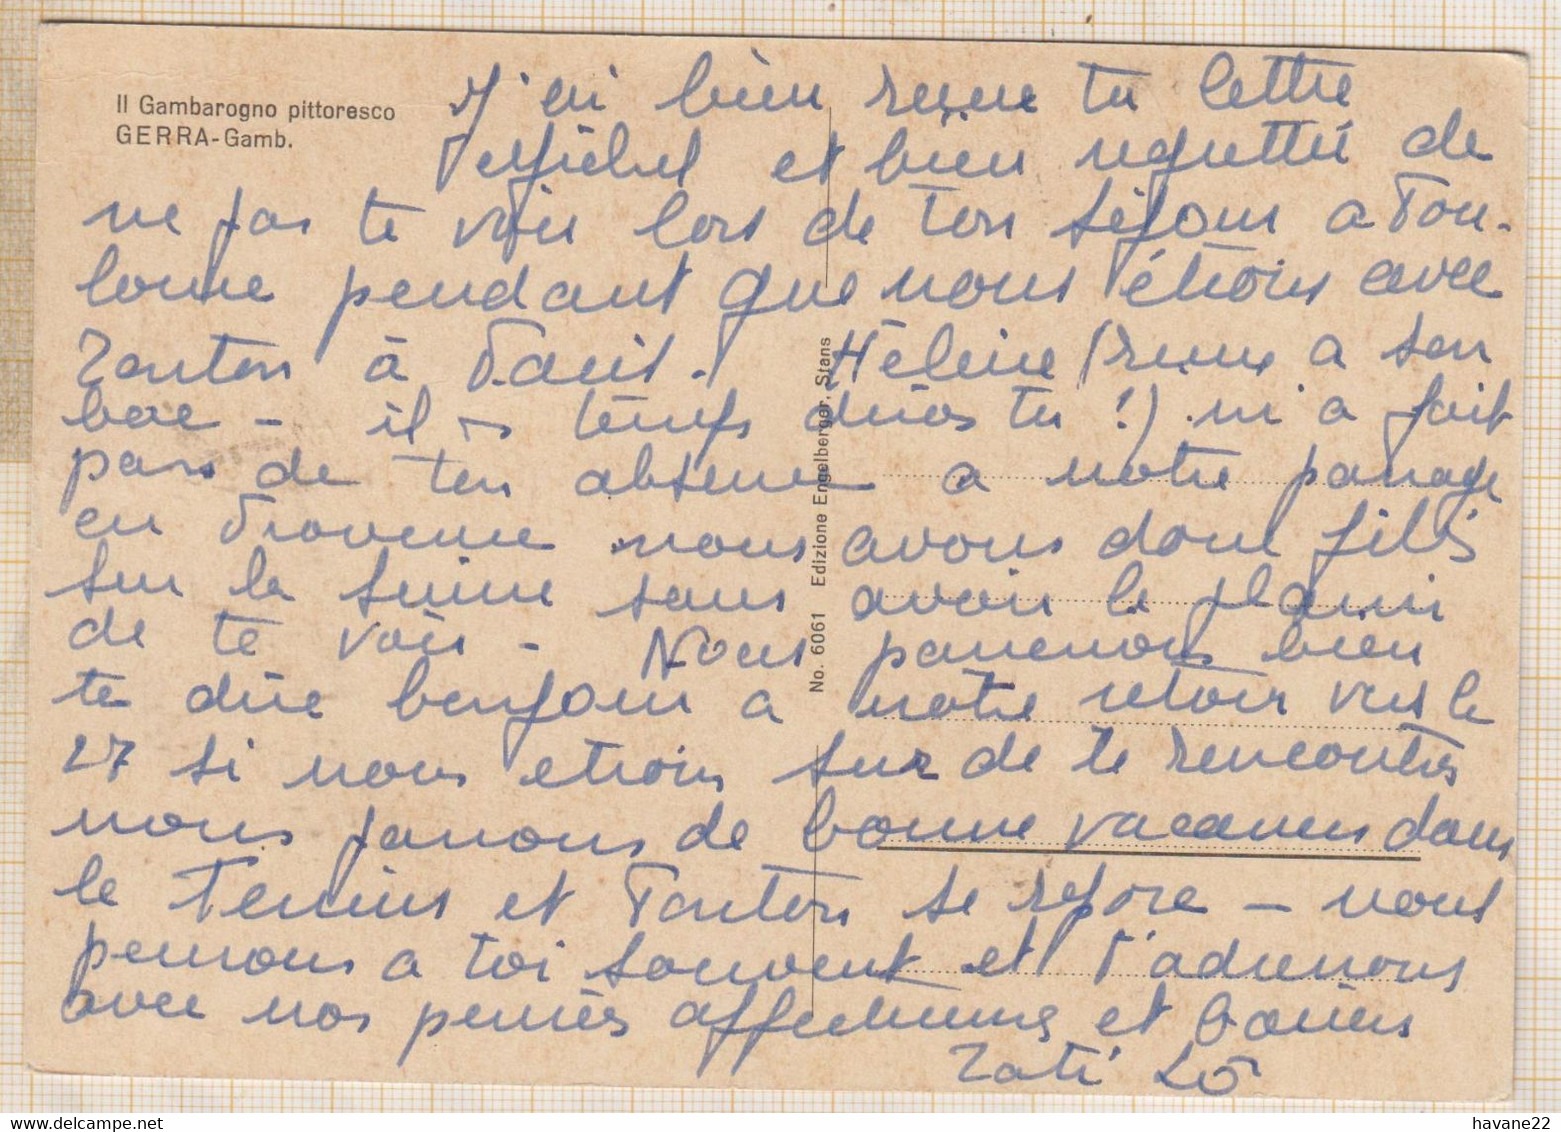 Il Gambarogno pittoresco
GERRA-Gamb.
J'ai bien reçue ta lettre
et bien regretté de
ne pas te voir lors de ton séjour a Tou-
louse pendant que nous étions avec
Tonton à Paris. Hélène (reçue a son
bac - il temps diras tu !) m'a fait
part de ton absence a notre passage
en Provence nous avons donc filés
sur la Suisse sans avoir le plaisir
de te voir - Nous passerons bien
te dire bonjour a notre retour vers le
27 si nous etions sur de te rencontrer
nous passons de bonne vacances dans
le Tessin et Tonton se repose - nous
pensons a toi souvent et t'adressons
avec nos pensées affectueuses et baisers
Tati Lo
No. 6061 Edizione Engelberger, Stans
havane22